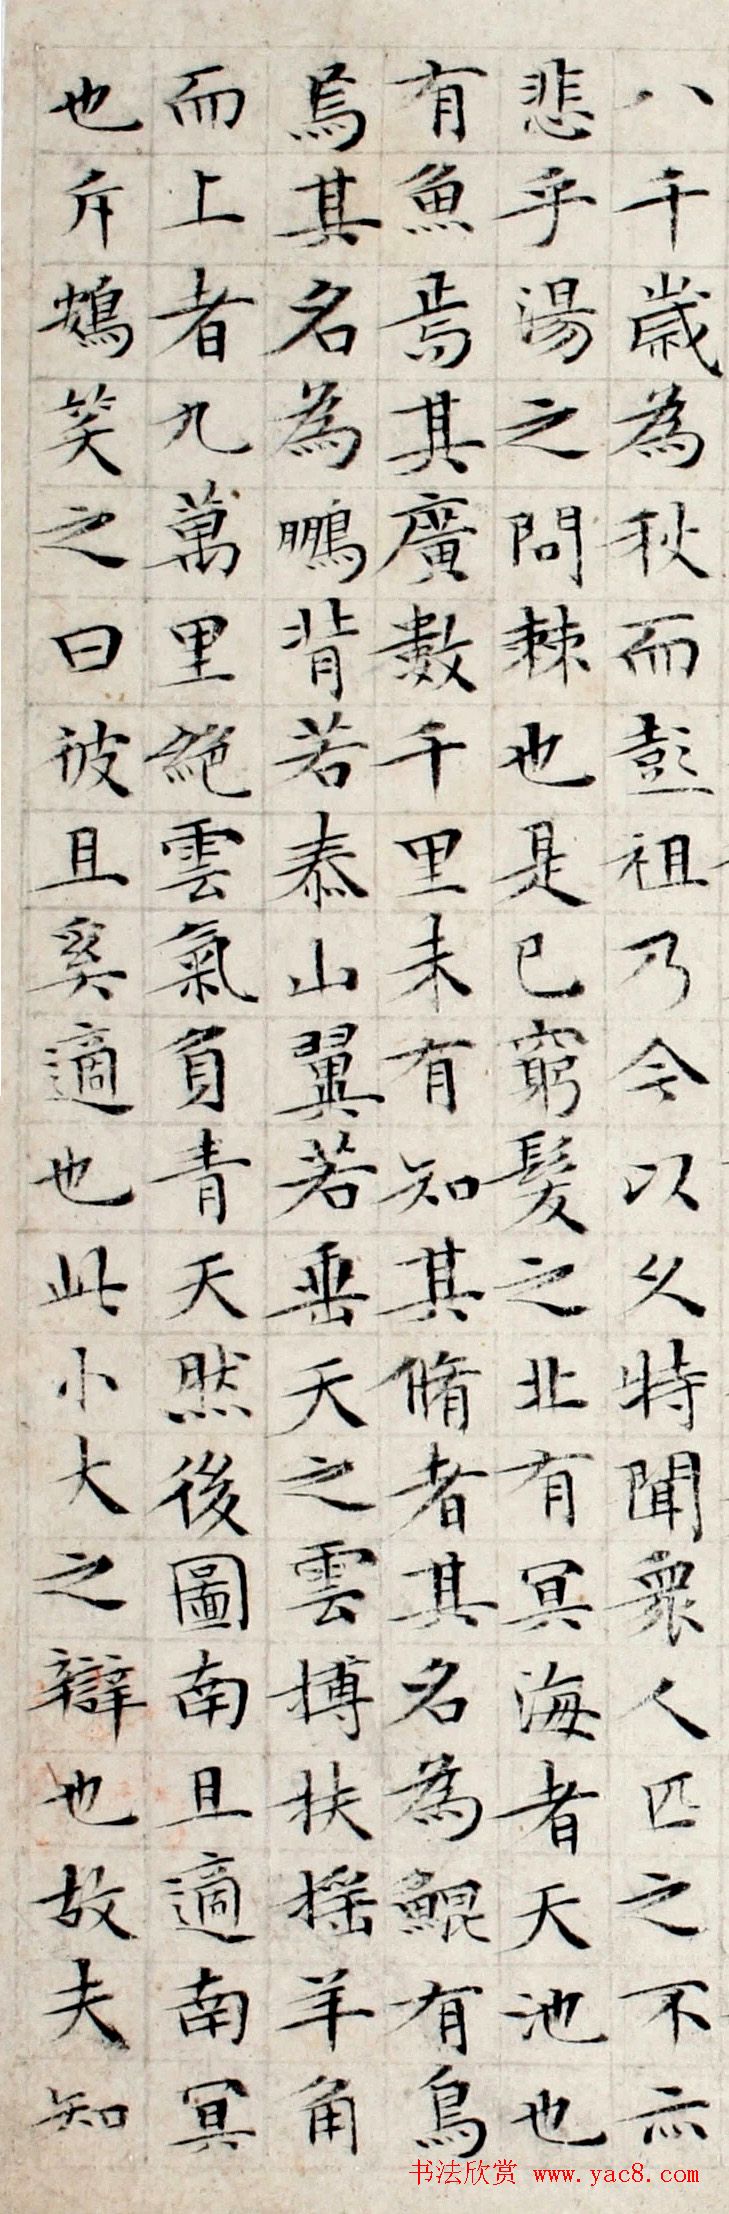 八千歲為秋而彭祖乃今以久特聞衆人匹之不亦
悲乎湯之問棘也是已窮髮之北有冥海者天池也
有魚焉其廣數千里未有知其脩者其名為鯤有鳥
焉其名為鵬背若泰山翼若垂天之雲搏扶摇羊角
而上者九萬里絶雲氣負青天然後圖南且適南冥
也斥鴳笑之曰彼且奚適也此小大之辯也故夫知
书法欣赏 www.yac8.com